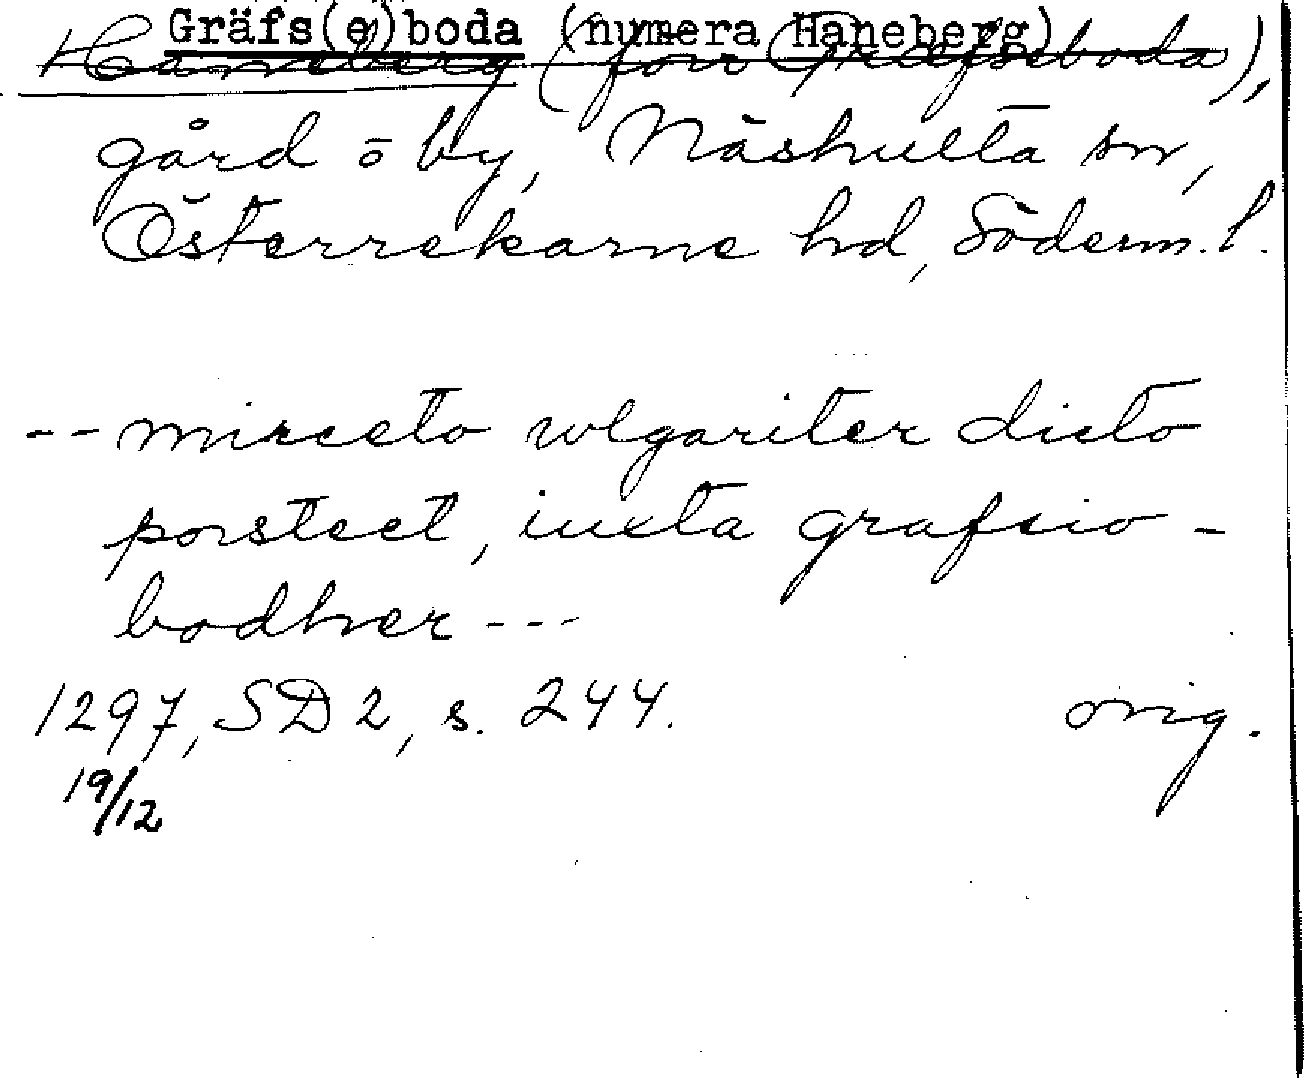 Gräfs(e)boda (numera Haneberg)
Haneberg (förr Gräfseboda),
gård o by, Näshulta sn,
Österrekarne hd, Söderm. l.
-- mirceto wlgariter dicto
porsteet, iuxta grafsio-
bodher ---
1297, SD 2, s. 244. orig.
19/12